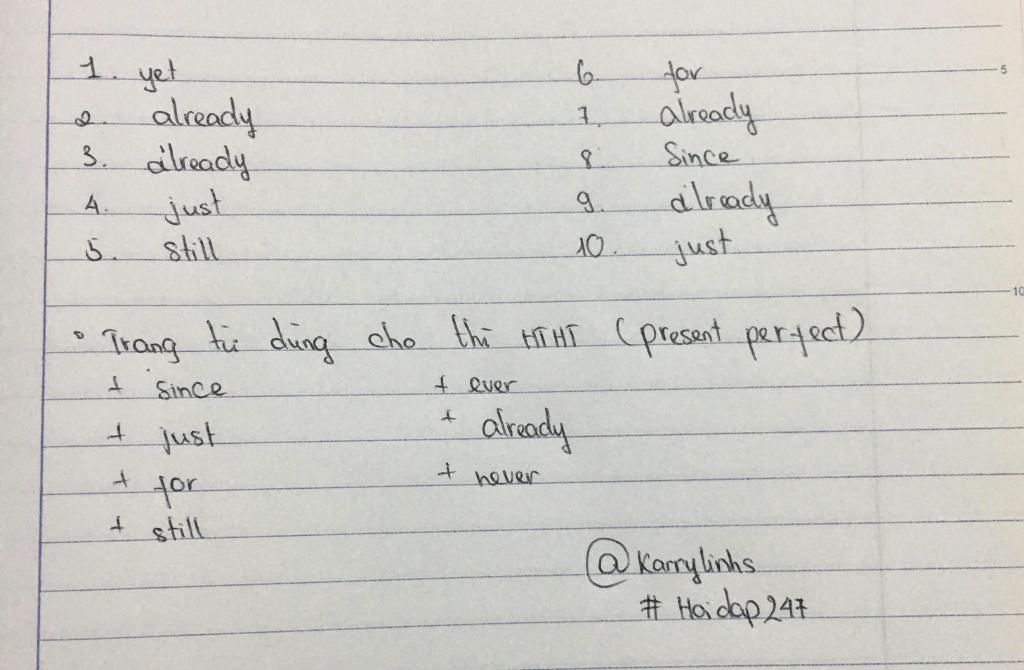 1. yet
2. already
3. already
4. just
5. still
6 for
7. already
8 Since
9. already
10. just
5
10
Trạng từ dùng cho thì HTHT (present perfect)
+ since
+ just
+ for
+ still
+ ever
+ already
+ never
@Karrylinhs
# Hoidap247